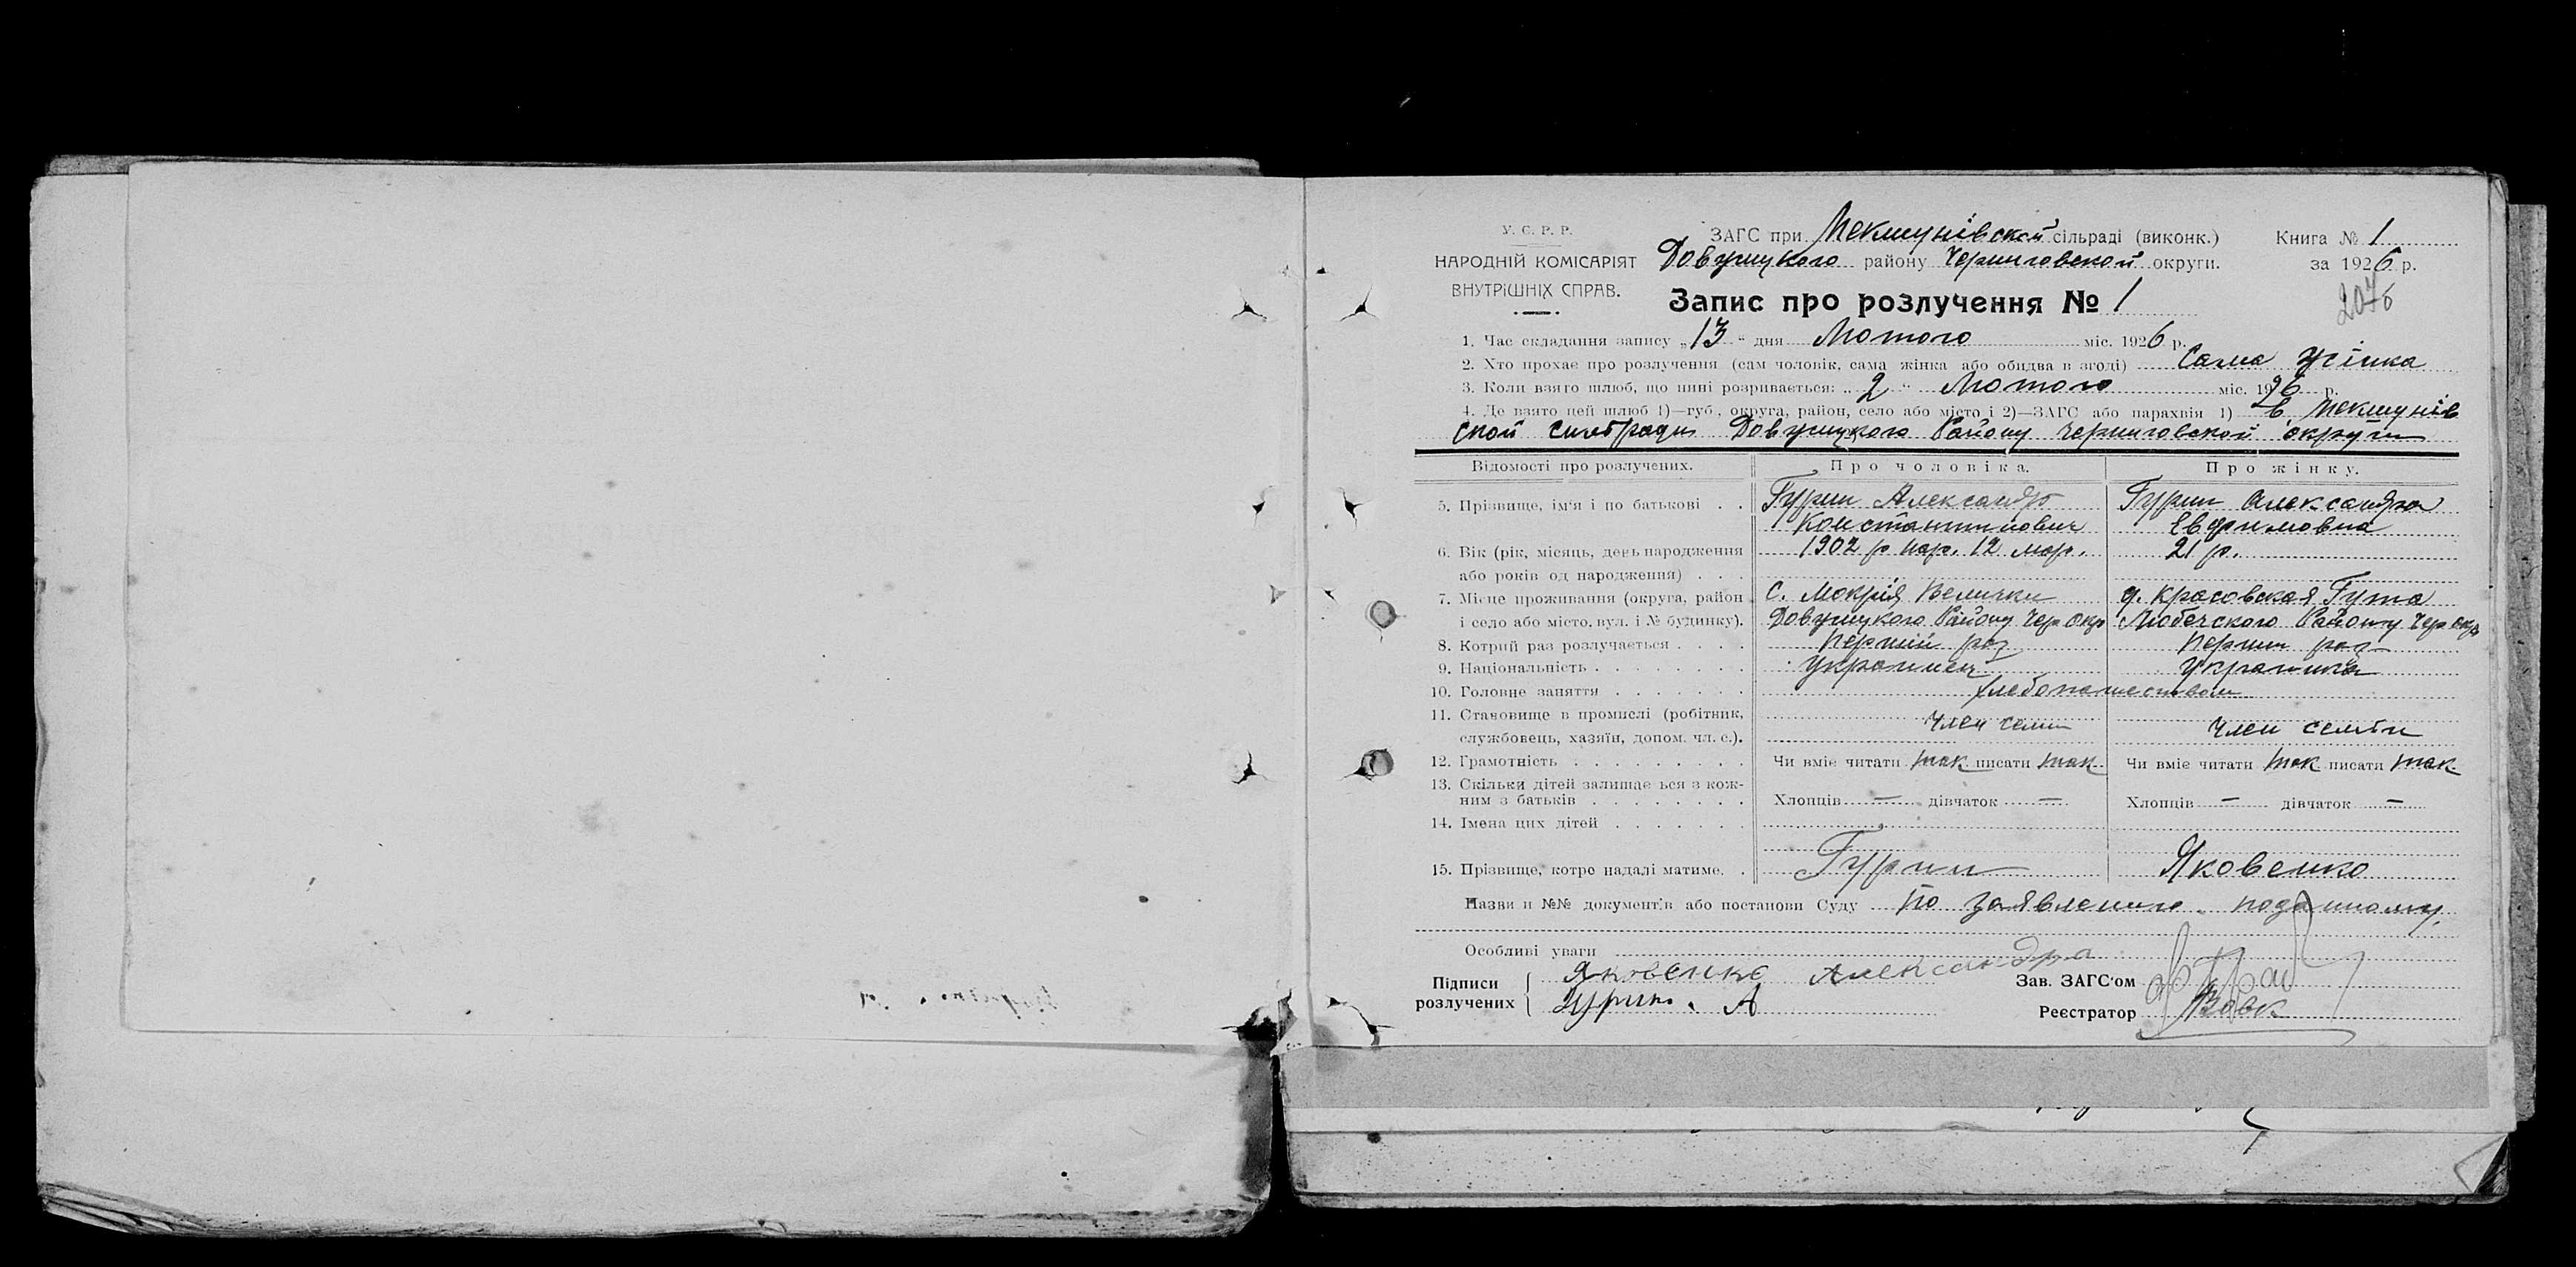 У. С. Р. Р.
НАРОДНІЙ КОМІСАРІЯТ
ВНУТРІШНІХ СПРАВ.
ЗАГС при Мекшунівской сільраді (виконк.)
Довжицкого району Черниговской округи.
Книга № 1
за 1926 р.
Запис про розлучення № 1
1. Час складання запису „13" дня Лютого міс. 1926 р.
2. Хто прохає про розлучення (сам чоловік, сама жінка або обидва в згоді) Сама жінка
3. Коли взято шлюб, що нині розривається: „2" Лютого міс. 1926 р.
4. Де взято цей шлюб 1)—губ., округа, район, село або місто і 2)—ЗАГС або парахвія 1) в Мекшунів
ской силбради Довжицкого Району Черниговской округи
Відомості про розлучених. Про чоловіка. Про жінку.
5. Прізвище, ім'я і по батькові . . Гурин Александр Гурин Александра
Константинович Евфимовна
6. Вік (рік, місяць, день народження 1902 р нар. 12 мар. 21 р.
або років од народження) . . .
7. Місце проживання (округа, район с. Мокрія Велички д. Красовская Гута
і село або місто, вул. і № будинку). Довжицкого Району Чер Окр Любечского Району Чер окр
8. Котрий раз розлучається . . . . Перший раз Перши раз
9. Національність . . . . . . . . украинец украинка
10. Головне заняття . . . . . . . хлебопашеством
11. Становище в промислі (робітник, член семи член семьи
службовець, хазяїн, допом. чл. с.).
12. Грамотність . . . . . . . . . Чи вміє читати так писати так Чи вміє читати так писати так
13. Скільки дітей залишає ься з кож-
ним з батьків . . . . . . . . Хлопців — дівчаток — Хлопців — дівчаток —
14. Імена цих дітей . . . . . . .
15. Прізвище, котре надалі матиме. . Гурин Яковенко
Назви и №№ документів або постанови Суду По заявлению поданному.
Особливі уваги
Підписи
розлучених
Яковенко Александра
Гурин. А
Зав. ЗАГС'ом
Реєстратор Вовк